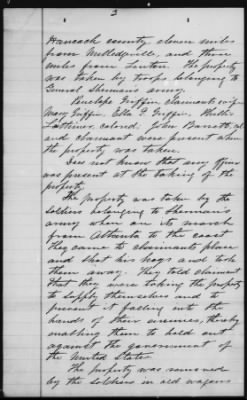 2
Hancock county eleven miles
from Milledgeville, and three
miles from Linton. The property
was taken by troops belonging to
General Shermans army.
Penelope Griffin claimants wife
Mary Griffin, Ella F. Griffin,
Lattimer, colored, John Barnett, col
and claimant were present when
the property was taken.
Does not know that any officer
was present at the taking of the
property.
The property was taken by the
soldiers belonging to Shermans
army when on its march
from Atlanta to the coast
They came to claimants place
and shot his hogs and took
them away. They told claimant
that they were taking the property
to supply themselves and to
prevent it falling into the
hands of their enemies, thereby
enabling them to hold out
against the government of
the United States.
The property was removed
by the soldiers in old wagons